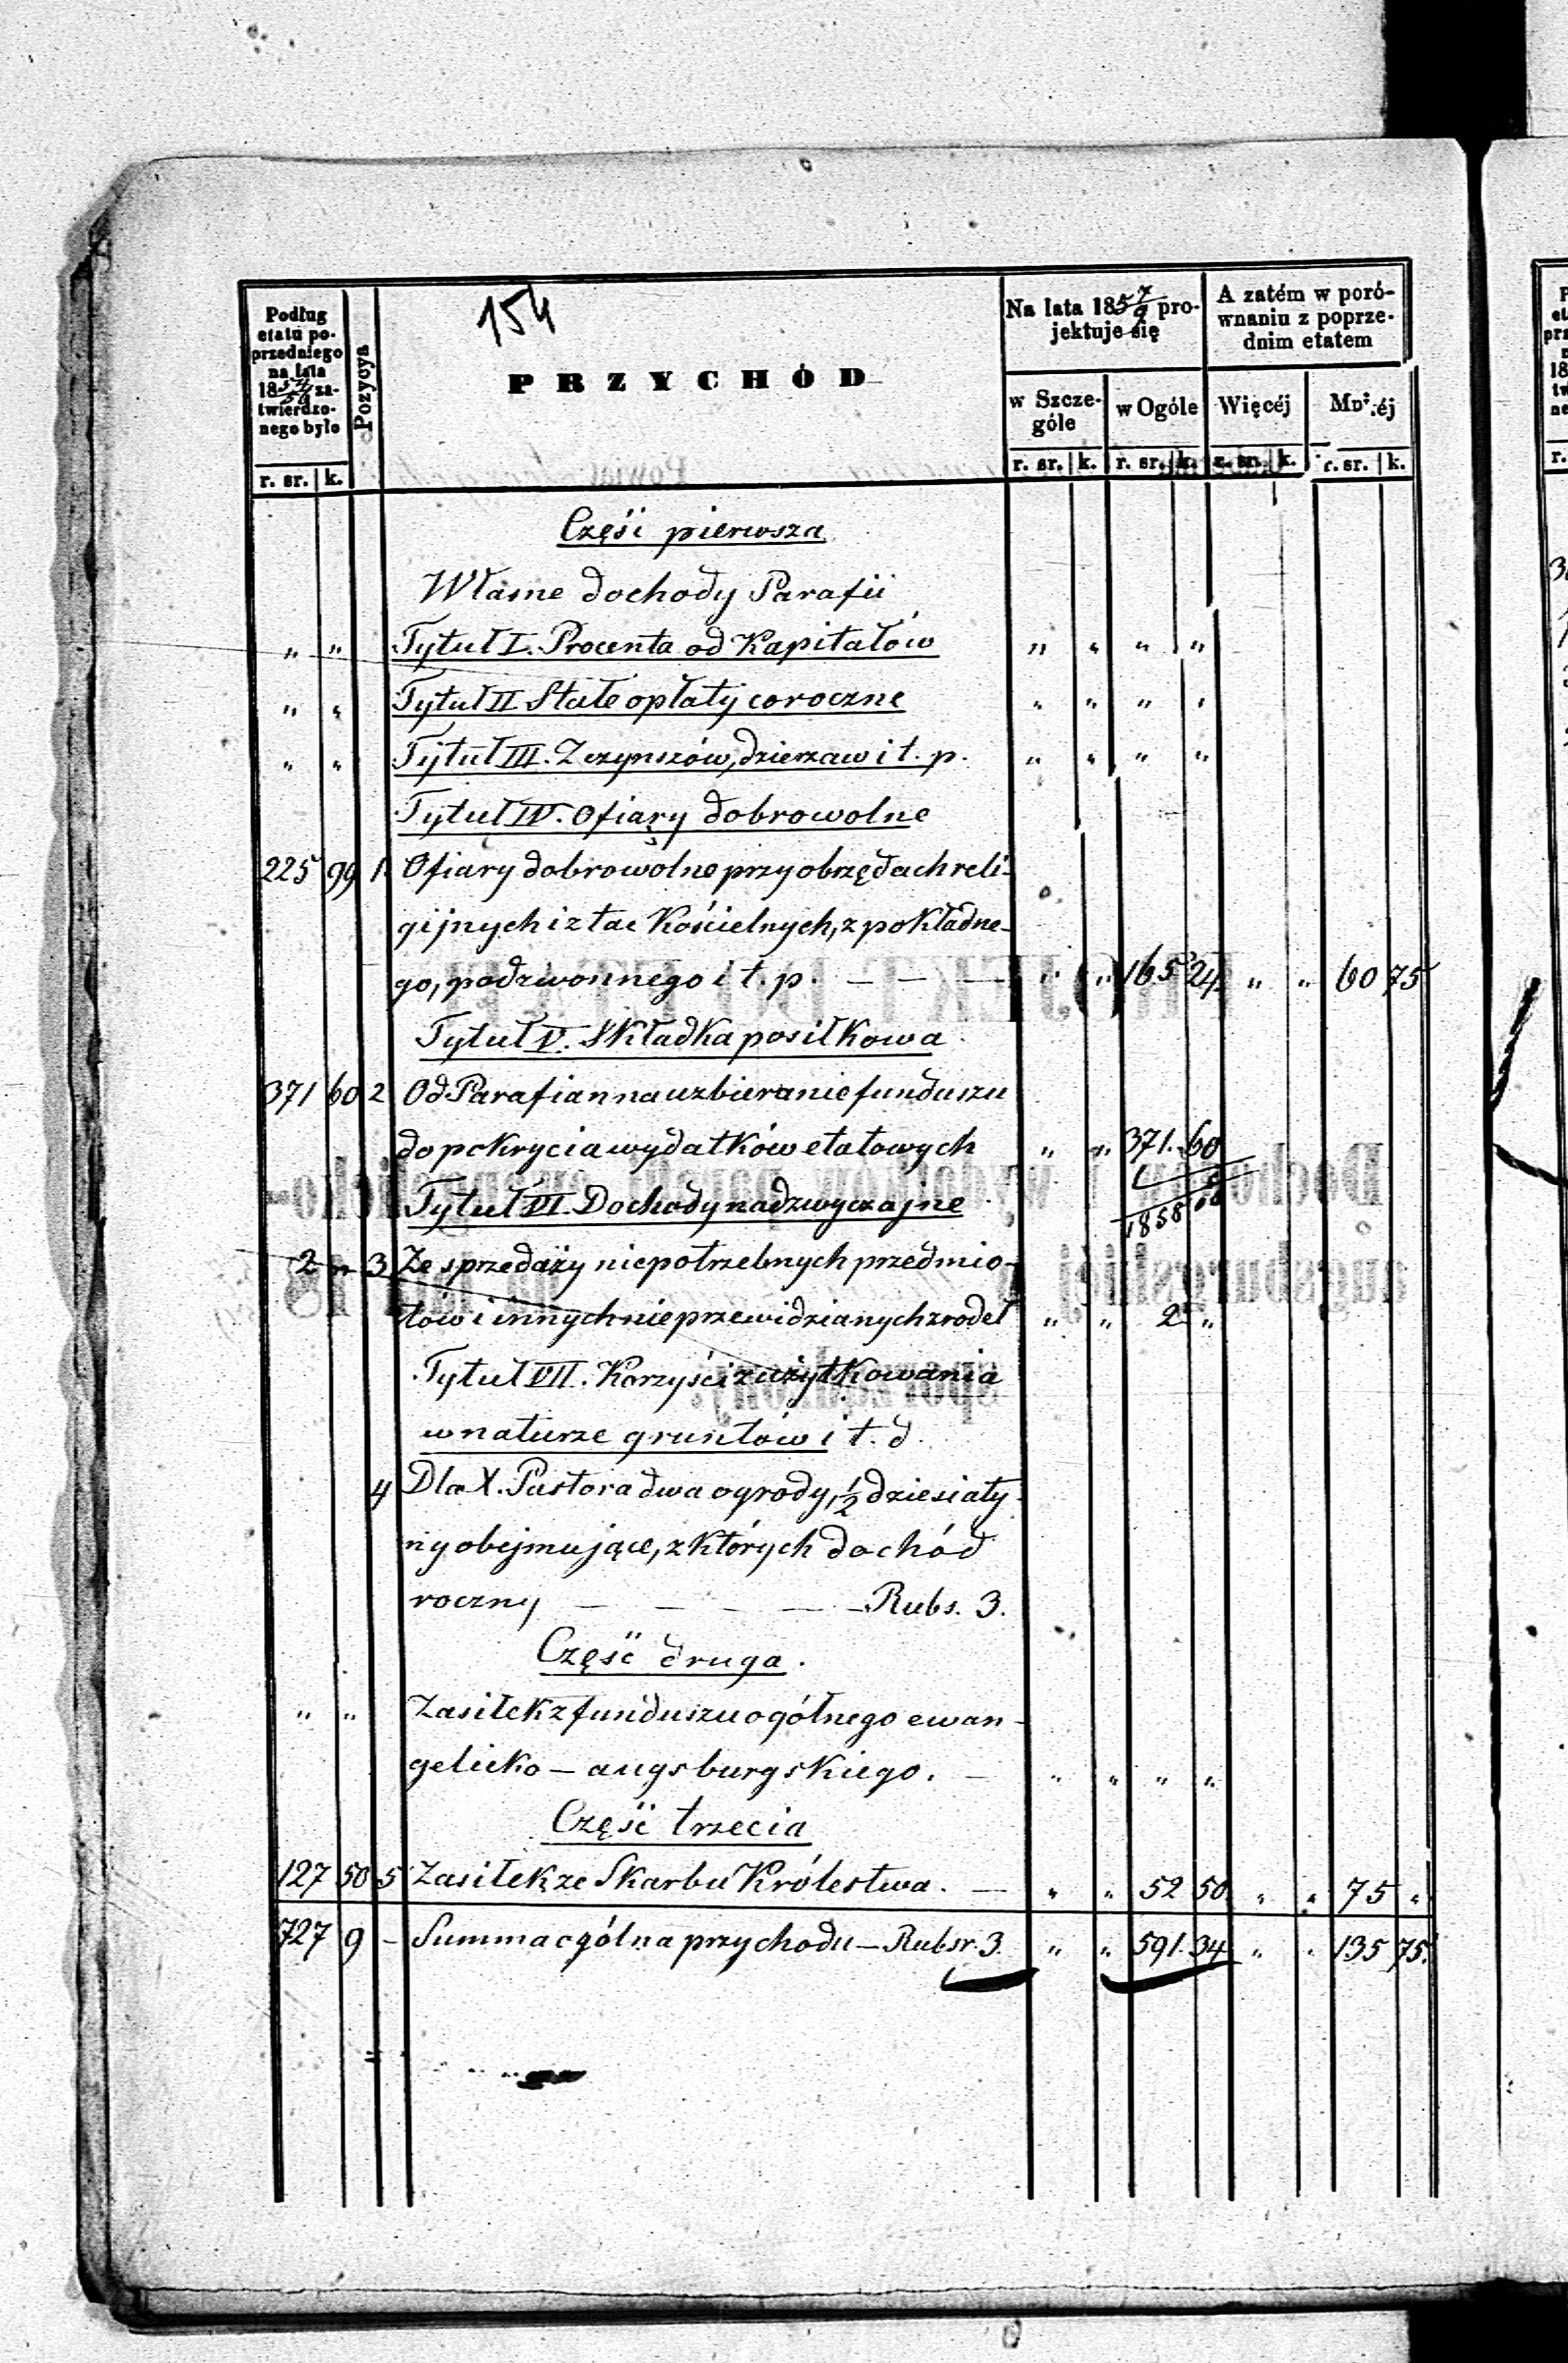 154
Podług etatu poprzedniego na lata 1854/56 zatwierdzonego było
Pozycya
PRZYCHÓD
Na lata 1857/9 projektuje się
A zatém w porównaniu z poprzednim etatem
w Szczególe
w Ogóle
Więcéj
Mniéj
r. sr. k.
r. sr. k. r. sr. k. r. sr. k. r. sr. k.
Część pierwsza
Własne dochody Parafii
" " Tytuł I. Procenta od Kapitałów " " " "
" " Tytuł II Stałe opłaty coroczne " " " "
" " Tytuł III. Z czynszów, dzierzaw i t. p. " " " "
Tytuł IV. Ofiary dobrowolne
225 99 1. Ofiary dobrowolne przy obrzędach reli-
gijnych i z tac Kościelnych, z pokładne-
go, podzwonnego i t. p. — — — " " 165 24 " " 60 75
Tytuł V. Składka posiłkowa
371 60 2 Od Parafian na uzbieranie funduszu
do pokrycia wydatków etatowych " " 371. 60
Tytuł VI. Dochody nadzwyczajne
1858
2 " 3 Ze sprzedaży niepotrzebnych przedmio-
tów i innych nieprzewidzianych zrodeł " " 2 "
Tytuł VII. Korzyści z użytkowania
w naturze gruntów i t. d.
4 Dla X. Pastora dwa ogrody, 1/2 dziesiaty-
ny obejmujące, z których dochód
roczny — — — — — Rubs. 3.
Część druga.
" " Zasiłek z funduszu ogólnego ewan-
gelicko – augsburgskiego. — " " " "
Część trzecia
127 50 5 Zasiłek ze Skarbu Królestwa. — " " 52 50 " " 75 "
727 9 – Summa ogólna przychodu – Rubsr. 3. " " 591. 34 " " 135 75.